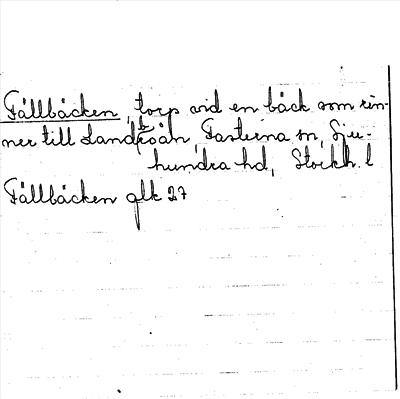 Fällbäcken, torp vid en bäck som rin-
ner till Landꝑoån, Fasterna sn, Sju-
hundra hd, Stockh. l
Fällbäcken glk 27